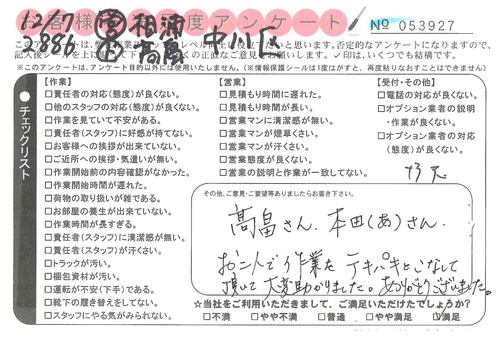 お客様満足度アンケート
12/7 相浦 中川区
3886 高畠
No 053927
※このアンケートは、アンケート目的以外には使用いたしません。(※情報保護シールは1度はがすと、再度貼りなおすことはできません)
チェックリスト
【作業】
□責任者の対応(態度)が良くない。
□他のスタッフの対応(態度)が良くない。
□作業を見ていて不安がある。
□責任者(スタッフ)に好感が持てない。
□お客様への挨拶が出来ていない。
□ご近所への挨拶・気遣いが無い。
□作業開始前の内容確認がなかった。
□作業開始時間が遅れた。
□荷物の取り扱いが雑である。
□お部屋の養生が出来ていない。
□作業時間が長すぎる。
□責任者(スタッフ)に清潔感が無い。
□責任者(スタッフ)が汗くさい。
□トラックが汚い。
□梱包資材が汚い。
□運転が不安(下手)である。
□靴下の履き替えをしてない。
□スタッフにやる気がみられない。
【営業】
□見積もり時間に遅れた。
□見積もり時間が長い。
□営業マンに清潔感が無い。
□営業マンが煙草くさい。
□営業マンが汗くさい。
□営業態度が良くない。
□営業の説明と作業が一致してない。
【受付・その他】
□電話の対応が良くない。
□オプション業者の説明
・作業が良くない。
□オプション業者の対応
(態度)が良くない。
その他、ご意見・ご要望等ありましたらお書き下さい。
高畠さん、本田(あ)さん、
お二人で作業を テキパキとこなして
頂いて 大変助かりました。ありがとうございました。
☆当社をご利用いただきまして、ご満足いただけたでしょうか?
□不満 □やや不満 □普通 □やや満足 ☑満足